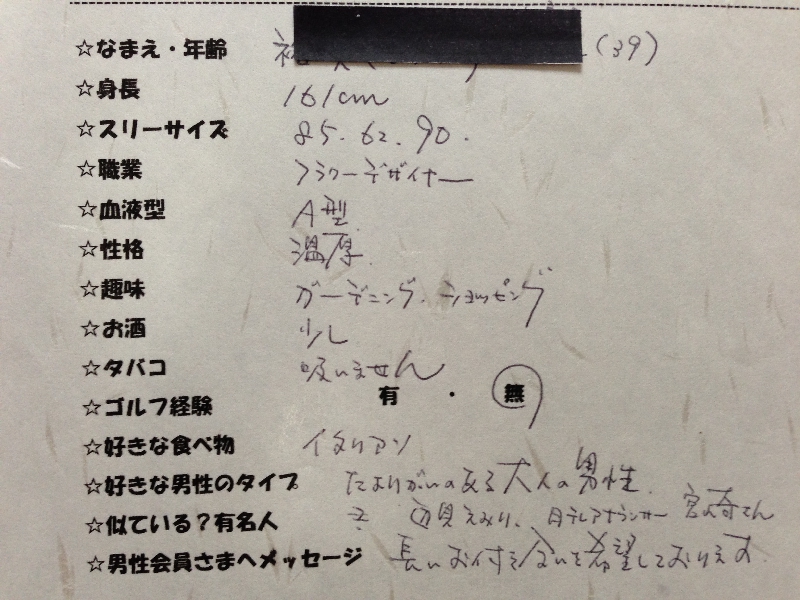 ☆なまえ・年齢 (39)
☆身長 161cm
☆スリーサイズ 85.62.90.
☆職業 フラワーデザイナー
☆血液型 A型
☆性格 温厚.
☆趣味 ガーデニング.ショッピング
☆お酒 少し
☆タバコ 吸いません
☆ゴルフ経験 有・無
☆好きな食べ物 イタリアン
☆好きな男性のタイプ たよりがいのある大人の男性.
☆似ている?有名人 辺見えみり、日テレアナウンサー 宮崎さん
☆男性会員さまへメッセージ 長いお付き合いを希望しております.